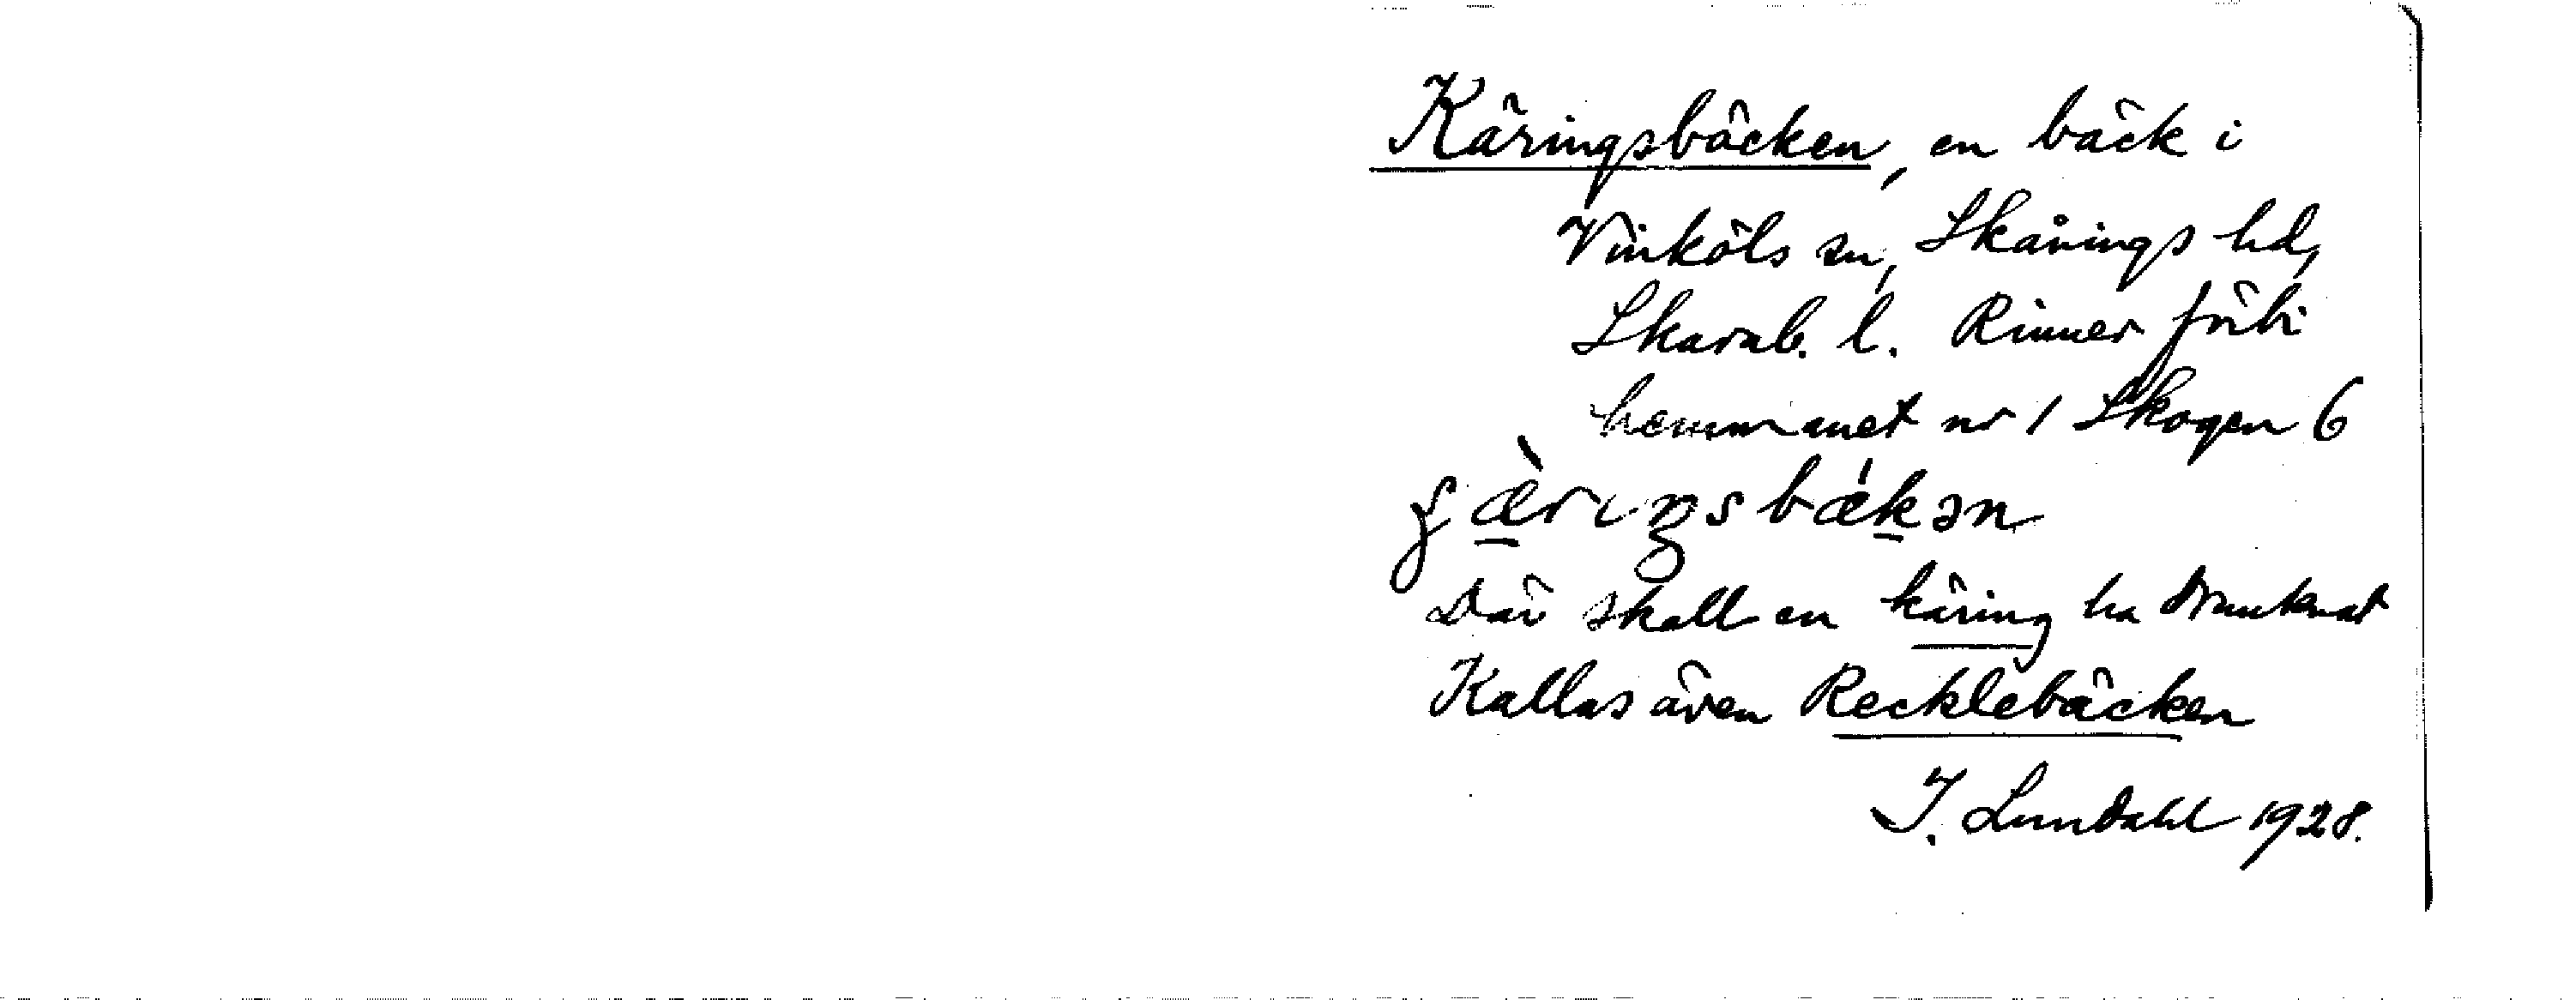 Käringsbäcken, en bäck i
Vinköls sn, Skånings hd,
Skarab. l. Rinner förbi
hemmanet nr 1 Skogen 6
Där skall en käring ha drunknat
Kallas även Recklebäcken
I. Lundahl 1928.